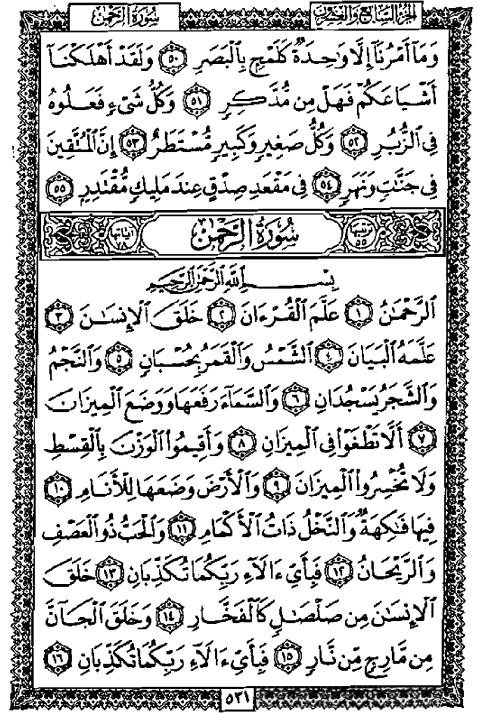 الجزء السابع والعشرون
سُورَةُ الرَّحْمٰن
وَمَآ أَمْرُنَآ إِلَّا وَٰحِدَةٌ كَلَمْحٍۭ بِٱلْبَصَرِ ٥٠ وَلَقَدْ أَهْلَكْنَآ
أَشْيَاعَكُمْ فَهَلْ مِن مُّدَّكِرٍ ٥١ وَكُلُّ شَىْءٍ فَعَلُوهُ
فِى ٱلزُّبُرِ ٥٢ وَكُلُّ صَغِيرٍ وَكَبِيرٍ مُّسْتَطَرٌ ٥٣ إِنَّ ٱلْمُتَّقِينَ
فِى جَنَّٰتٍ وَنَهَرٍ ٥٤ فِى مَقْعَدِ صِدْقٍ عِندَ مَلِيكٍ مُّقْتَدِرٍۭ ٥٥
ترتيبها ٥٥ سُورَةُ الرَّحْمٰن آياتها ٧٨
بِسْمِ ٱللَّهِ ٱلرَّحْمَٰنِ ٱلرَّحِيمِ
ٱلرَّحْمَٰنُ ١ عَلَّمَ ٱلْقُرْءَانَ ٢ خَلَقَ ٱلْإِنسَٰنَ ٣
عَلَّمَهُ ٱلْبَيَانَ ٤ ٱلشَّمْسُ وَٱلْقَمَرُ بِحُسْبَانٍ ٥ وَٱلنَّجْمُ
وَٱلشَّجَرُ يَسْجُدَانِ ٦ وَٱلسَّمَآءَ رَفَعَهَا وَوَضَعَ ٱلْمِيزَانَ
٧ أَلَّا تَطْغَوْا۟ فِى ٱلْمِيزَانِ ٨ وَأَقِيمُوا۟ ٱلْوَزْنَ بِٱلْقِسْطِ
وَلَا تُخْسِرُوا۟ ٱلْمِيزَانَ ٩ وَٱلْأَرْضَ وَضَعَهَا لِلْأَنَامِ ١٠
فِيهَا فَٰكِهَةٌ وَٱلنَّخْلُ ذَاتُ ٱلْأَكْمَامِ ١١ وَٱلْحَبُّ ذُو ٱلْعَصْفِ
وَٱلرَّيْحَانُ ١٢ فَبِأَىِّ ءَالَآءِ رَبِّكُمَا تُكَذِّبَانِ ١٣ خَلَقَ
ٱلْإِنسَٰنَ مِن صَلْصَٰلٍ كَٱلْفَخَّارِ ١٤ وَخَلَقَ ٱلْجَآنَّ
مِن مَّارِجٍ مِّن نَّارٍ ١٥ فَبِأَىِّ ءَالَآءِ رَبِّكُمَا تُكَذِّبَانِ ١٦
٥٣١